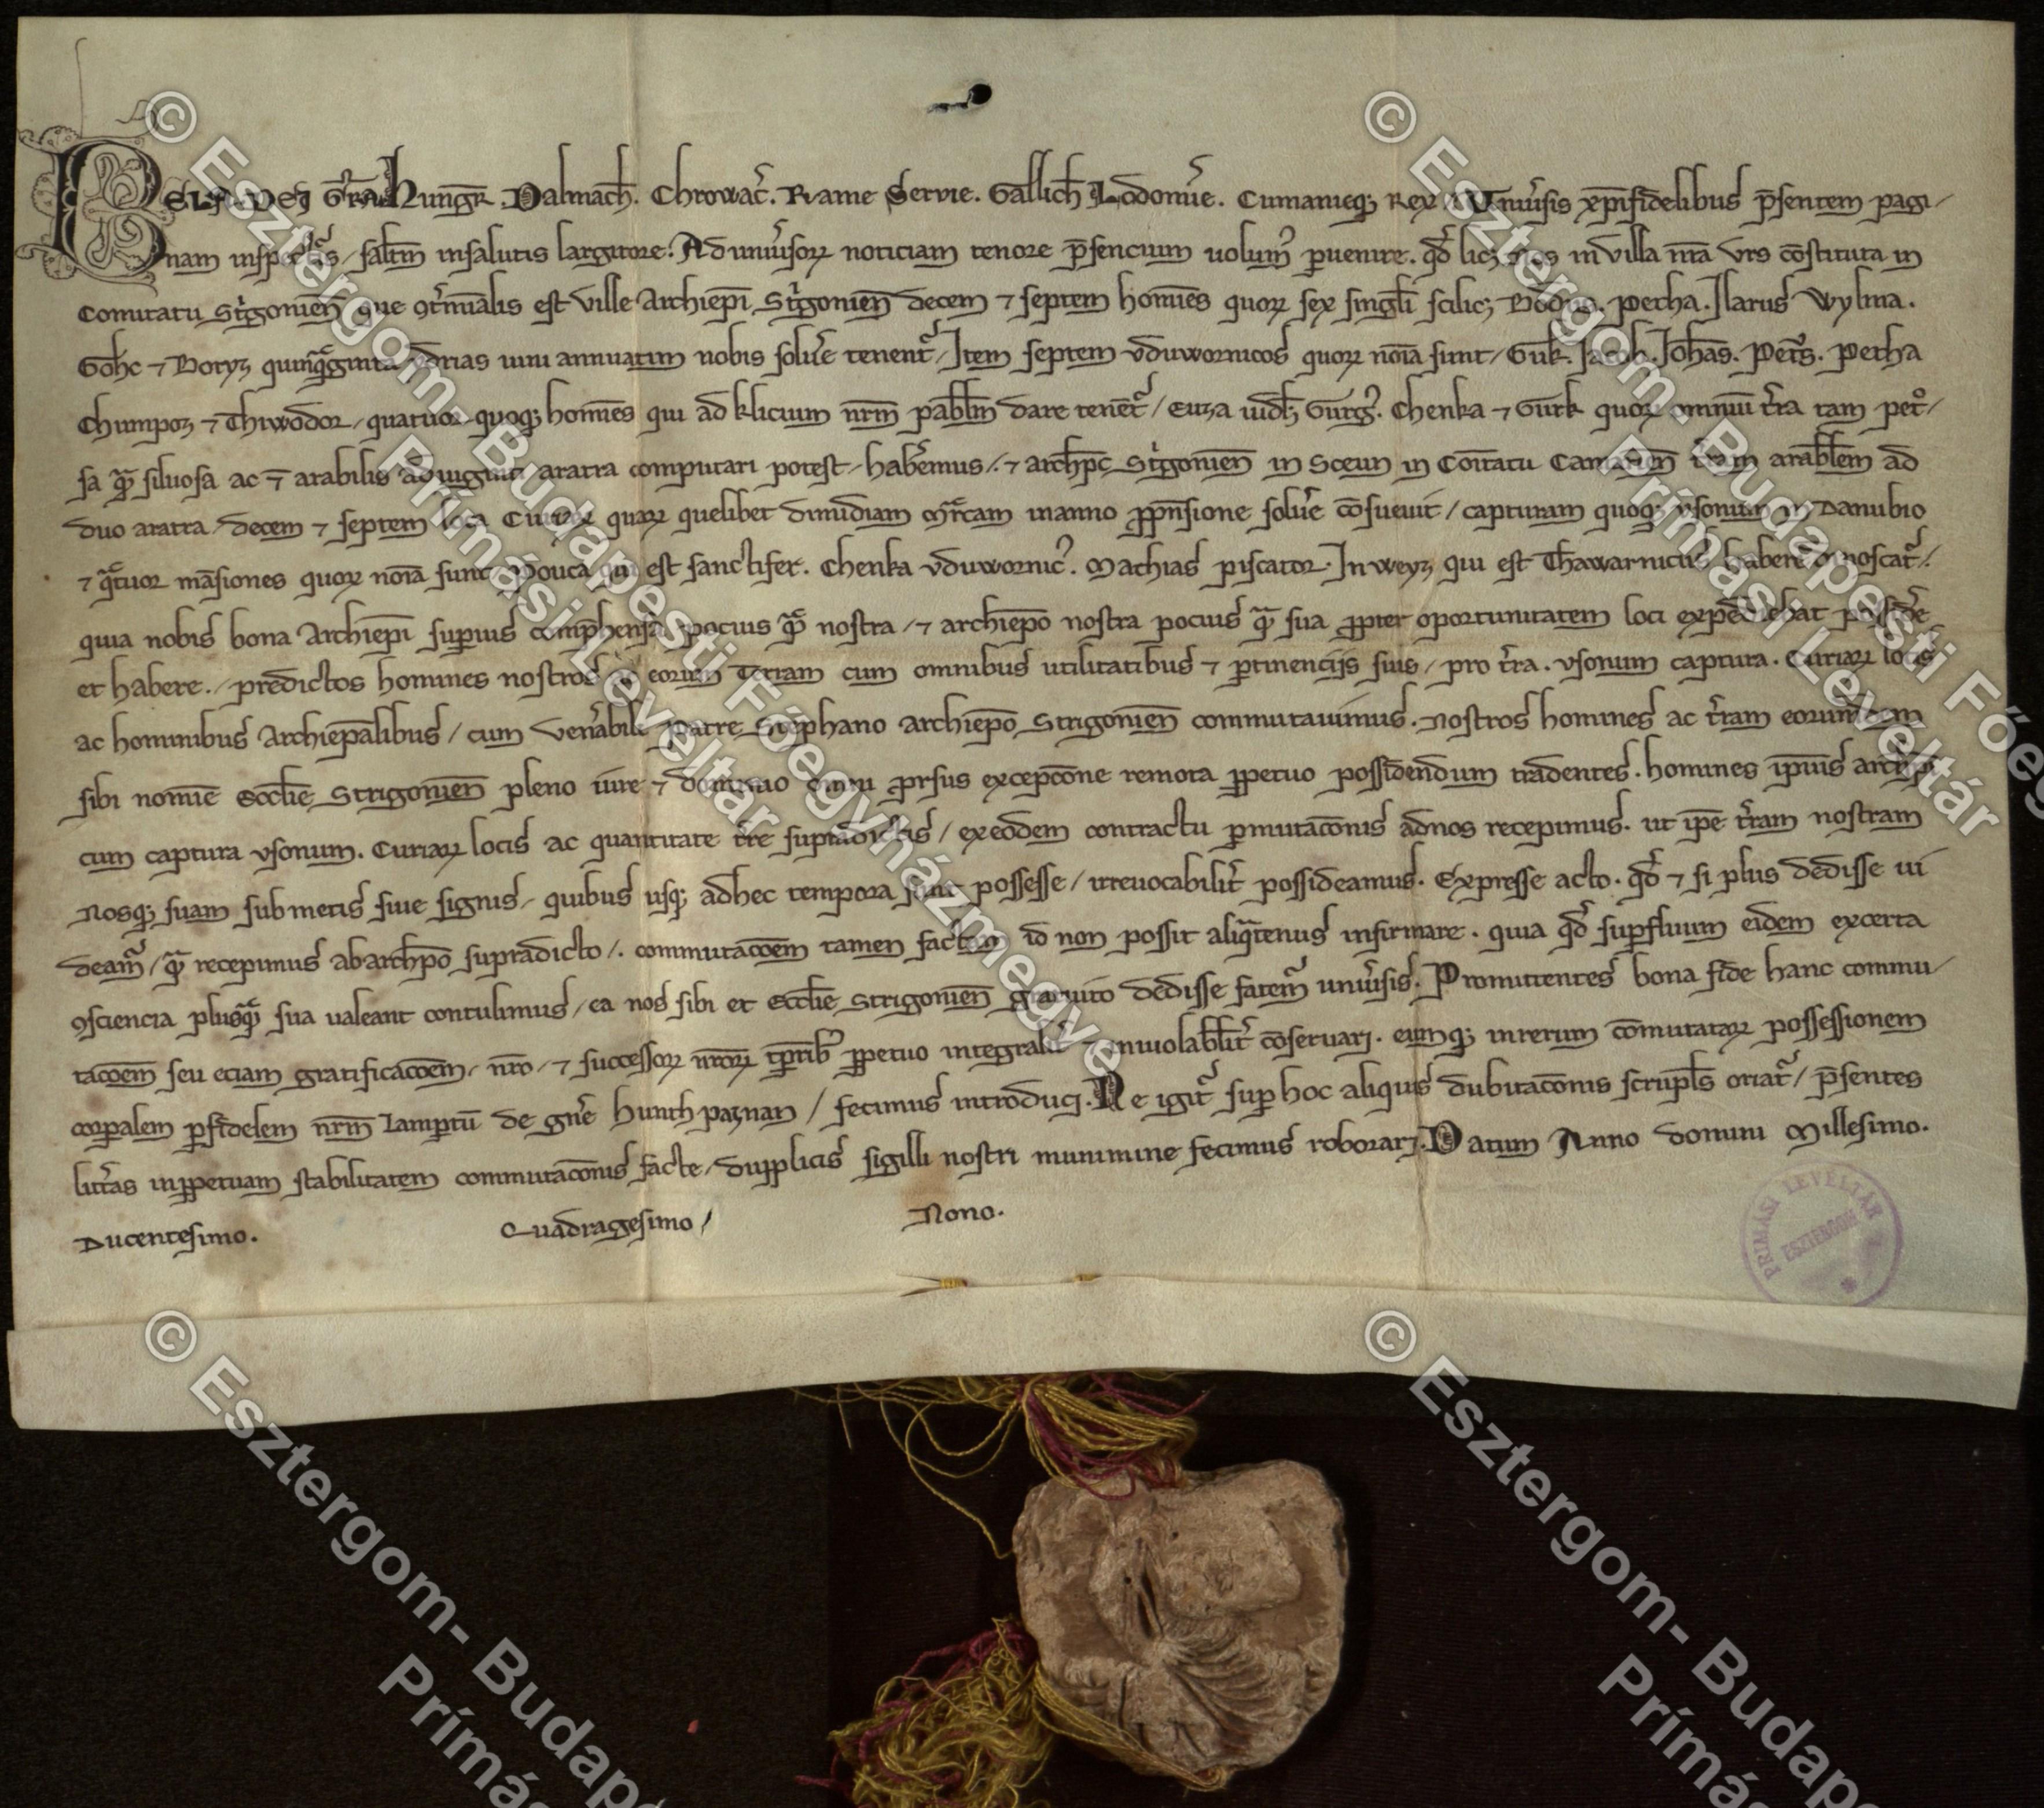 BELA DEI Gr̃a Hungr̃. Dalmacħ. Chrowac̃. Rame Servie. Gallicħ Lodom̃ie. Cumanieq; Rex Uniũsis xp̃ifidelibus p̃sentem pagi/
nam inspectu̾s, salt̃m insalutis largitore. Ad uniũsoꝝ noticiam tenore p̃sencium uolum̾ ꝑuenire. qd̾ lic; nos in villa nr̃a Vrs c̃ostituta in
Comitatu St̾gonien̄ que ꝯt̾minalis est ville Archiep̃i St̾gonien̄ decem ⁊ septem homĩes quoꝝ sex singl̃i scilic; Bodus. Petha. Ilarus Wylma.
Gohc ⁊ Boryz quinq̾ginta ydrias uini annuatim nobis solũe tenent̾, Item septem vduwornicos quoꝝ noĩa sunt, Guk. Jacob. Joh̃as. Pet̾s. Petha
Chimpoz ⁊ Thiwodor, quatuor quoq; homĩes qui ad klicium nr̃m pabl̃m dare tenẽt̾, Euza uidl; Gurg̾. Chenka ⁊ Gurk quoꝝ omniũ t̾ra tam pet̾o/
sa q̾m siluosa ac ⁊ arabilis ad uiginti aratra computari potest, hab̾emus, ⁊ archp̃c St̾gonien̄ in Sceun in Com̃tatu Camarien̄ t̾ram arabl̃em ad
duo aratra, decem ⁊ septem loca Curiaꝝ quaꝝ quelibet dimidiam m̾rcam inanno ꝓp̃nsione solũe c̃osueuit, capturam quoq; vsonum in Danubio
⁊ q̾tuor m̃asiones quoꝝ noĩa sunt Pouca qui est sanctifer. Chenka vduwornic̾. Mathias piscator. Inweyz qui est Thawarnicus habere dinoscat̾,
quia nobis bona Archiep̃i suꝑius comp̃hensa pocius q̾m nostra, ⁊ archiep̃o nostra pocius q̾m sua ꝓpter oportunitatem loci expediebat possid̾e
et habere, predictos homines nostros ac eorum Terram cum omnibus utilitatibus ⁊ ꝑtinencijs suis, pro t̾ra. vsonum captura. Curiaꝝ locis
ac hominibus Archiep̃alibus, cum ven̾abili patre Stephano archiep̃o Strigonien̄ commutauimus. Nostros homines ac t̾ram eorumdem
sibi nomĩe Eccl̃ie Strigonien̄ pleno iure ⁊ dominio omni ꝓrsus excepc̃one remota ꝑpetuo possidendum tradentes. homines ip̃ius archiep̃i
cum captura vsonum. Curiaꝝ locis ac quantitate t̾re sup̾adictis, exeodem contractu ꝑmutac̃onis adnos recepimus. ut ip̃e t̾ram nostram
Nosq; suam sub metis siue signis, quibus usq; adhec tempora sunt possesse, irreuocabilit̾ possideamus. Expresse acto. qd̾ ⁊ si plus dedisse ui
deam̾, q̾m recepimus abarchp̃o sup̾adicto, commutac̃oem tamen factam id non possit aliq̾tenus infirmare. quia qd̾ suꝑfluum eidem excerta
ꝯsciencia plusq̾m sua ualeant contulimus, ea nos sibi et Eccl̃ie Strigonien̄ gratuito dedisse fatem̾ uniũsis. Promittentes bona fide hanc commu/
tac̃oem seu eciam gratificac̃oem, nr̃o, ⁊ successoꝝ nr̃oꝝ tp̃rib̾ ꝑpetuo integralit̾ ⁊ inuiolabl̃it̾ c̃oseruarj. eumq; inrerum c̃omutataꝝ possessionem
corꝑalem ꝑfidelem nr̃m Lamp̃tũ de gñe Hunth paznan, fecimus introducj. Ne igit̾ suꝑ hoc aliquis dubitac̃onis scrupl̃s oriat̾, p̃sentes
litt̾as inꝑpetuam stabilitatem commutac̃onis facte, dupplicis sigilli nostri munimine fecimus roborarj. Datum Anno domini Millesimo.
Ducentesimo. Quadragesimo, Nono.
PRIMÁSI LEVÉLTÁR ESZTERGOM
© Esztergom- Budapesti Főegyházmegye
Prímási Levéltár
© Esztergom- Budapesti Főeg
Prímási Levéltár
© Esztergom- Budape
Prímás
© Esztergom- Budap
Prímás